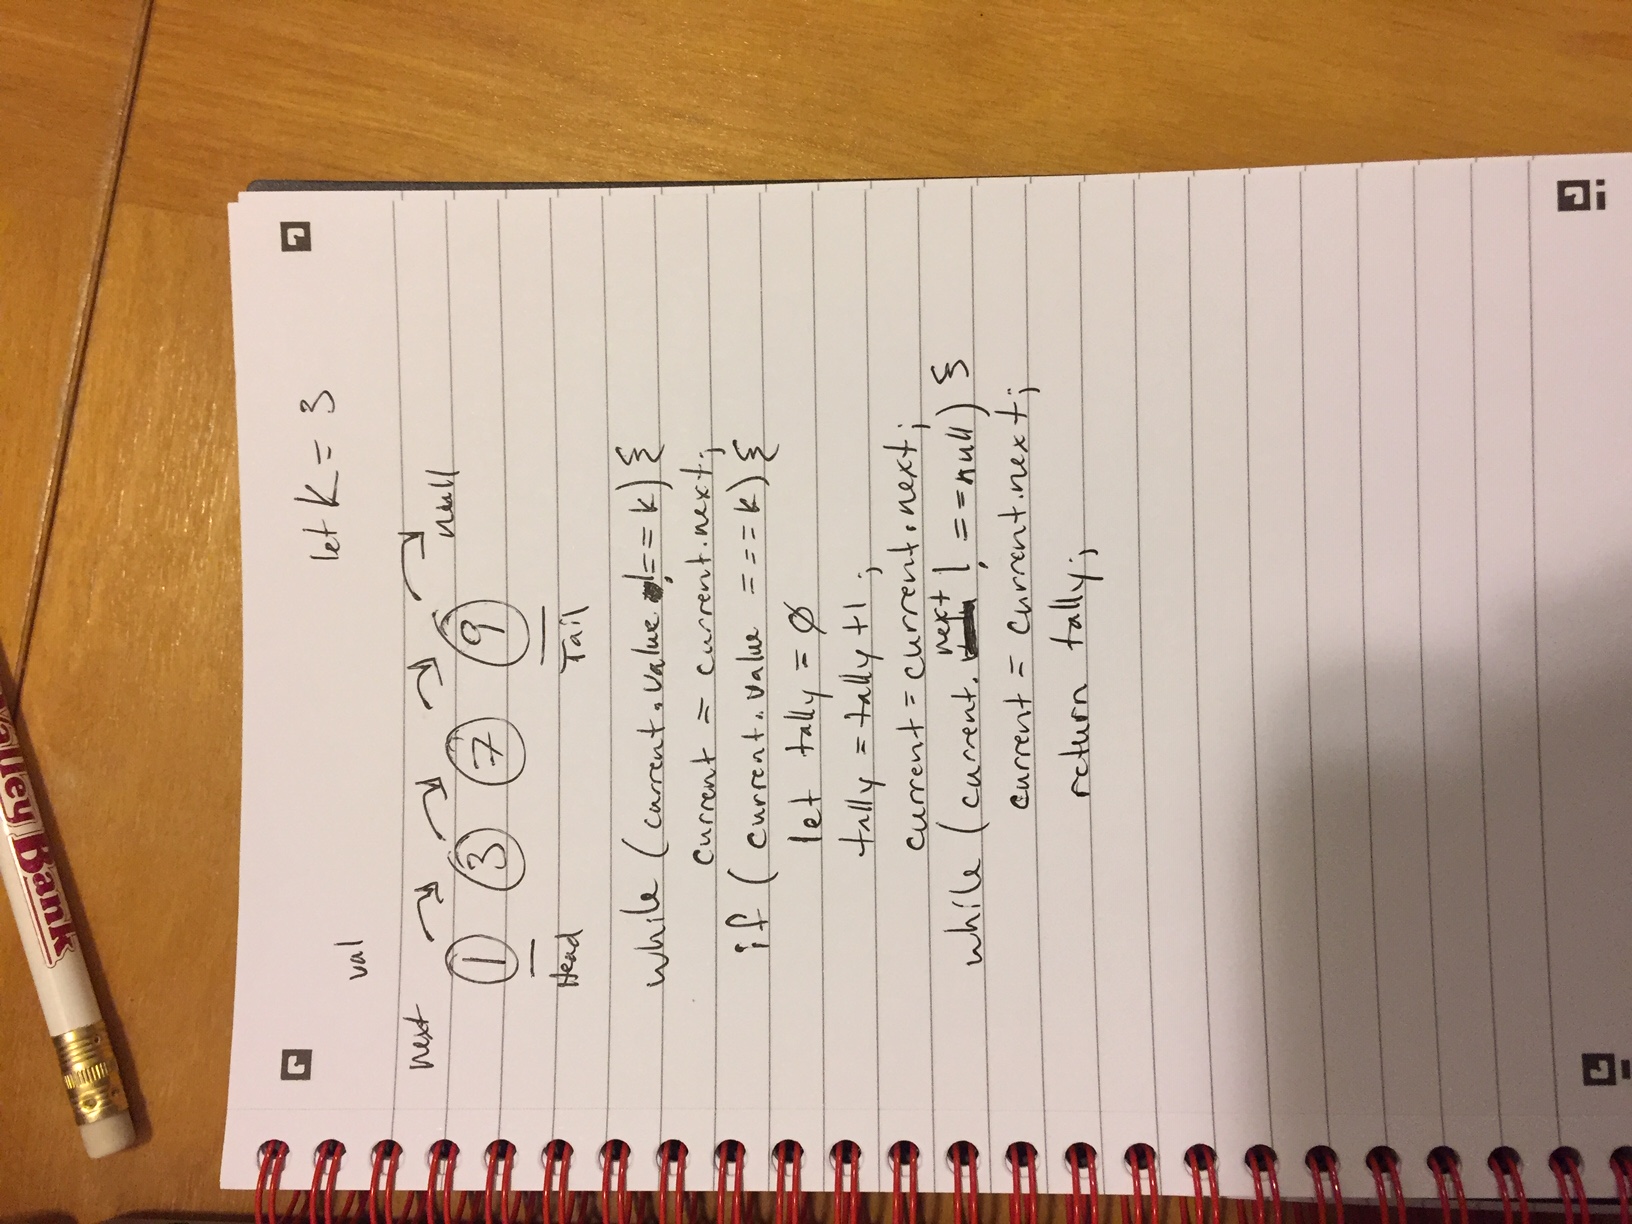 let k = 3
val
next
null
1 3 7 9
Head Tail
while (current.value !== k) {
current = current.next;
if (current.value === k) {
let tally = 0
tally = tally +1;
current = current.next;
while (current.next !== null) {
current = current.next;
return tally;
Valley Bank